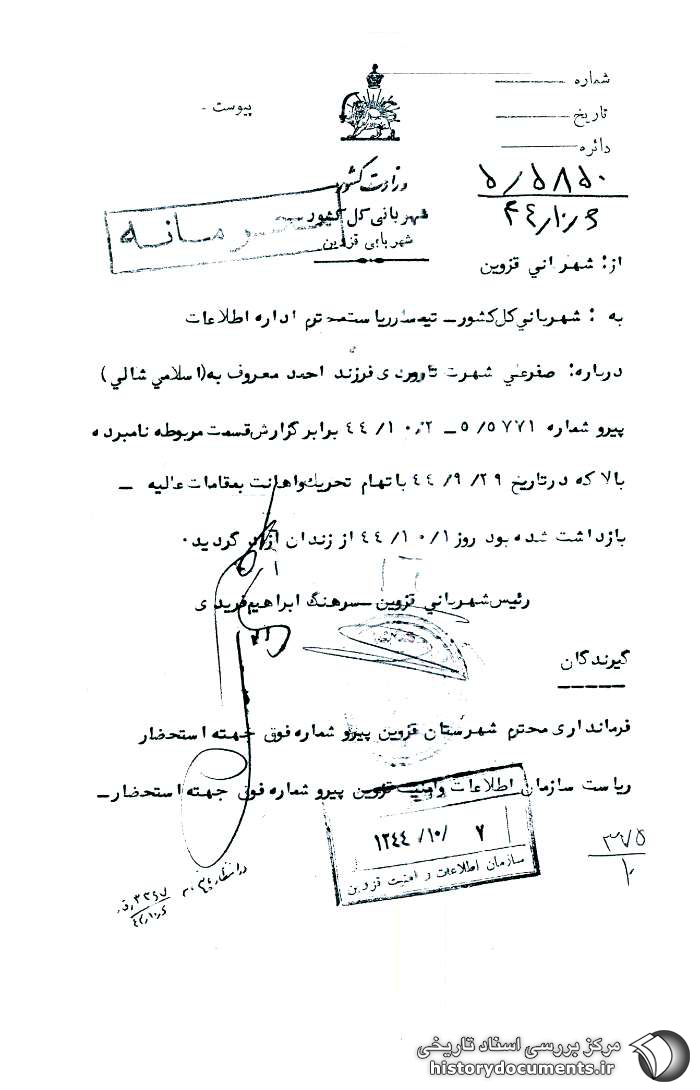 شماره
تاریخ
دائره
پیوست
وزارت کشور
شهربانی کل کشور
شهربانی قزوین
محرمانه
۵/۵۸۵۰
۴۴/۱۰/۶
از: شهربانی قزوین
به : شهربانی کل کشور ـ تیمسار ریاست محترم اداره اطلاعات
درباره: صفرعلی شهرت فرزند احمد معروف به (اسلامی شالی)
پیرو شماره ۵/۵۷۷۱ ـ ۴۴/۱۰/۲ برابر گزارش قسمت مربوطه نامبرده
بالا که در تاریخ ۴۴/۹/۲۹ باتهام تحریک واهانت بمقامات عالیه ـ
بازداشت شده بود روز ۴۴/۱۰/۱ از زندان آزاد گردید.
رئیس شهربانی قزوین ـ سرهنگ ابراهیم فریدی
گیرندگان
فرمانداری محترم شهرستان قزوین پیرو شماره فوق جهته استحضار
ریاست سازمان اطلاعات وامنیت قزوین پیرو شماره فوق جهته استحضار ـ
۷ /۱۰/ ۱۳۴۴
سازمان اطلاعات و امنیت قزوین
مرکز بررسی اسناد تاریخی
historydocuments.ir